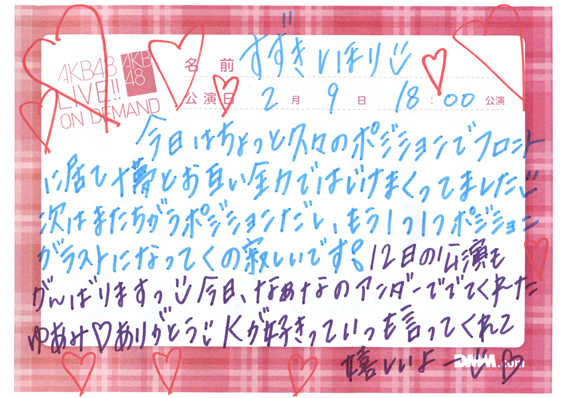 AKB48
LIVE!!
ON DEMAND
AKB
48
名前 すずきいほり
公演日 2月9日 18:00公演
今日はちょっと久々のポジションでフロント
に居て十夢とお互い全力ではじけまくってました
次はまたちがうポジションだし、もう1つ1つポジション
がラストになってくの寂しいです。12日の公演も
がんばりますっ 今日、なぁなのアンダーででてくれた
ゆあみ♡ありがとう Kが好きっていっつも言ってくれて
嬉しいよー♡
DMM.com